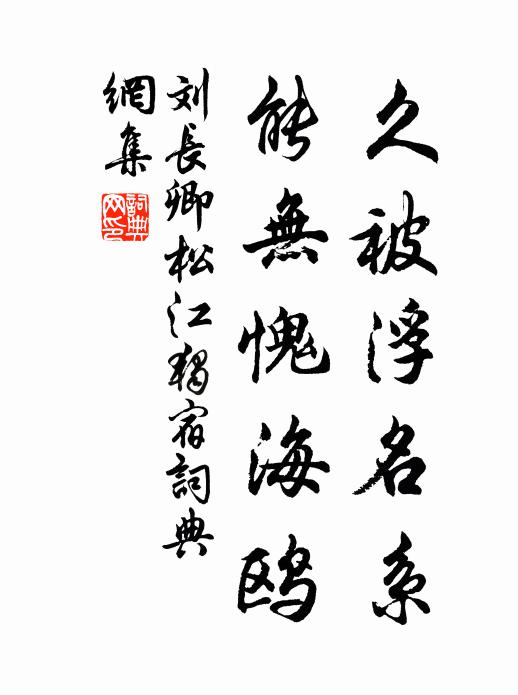 久被浮名系
能無愧海鸥
刘長卿松江獨宿詞典
網集
詞典網印